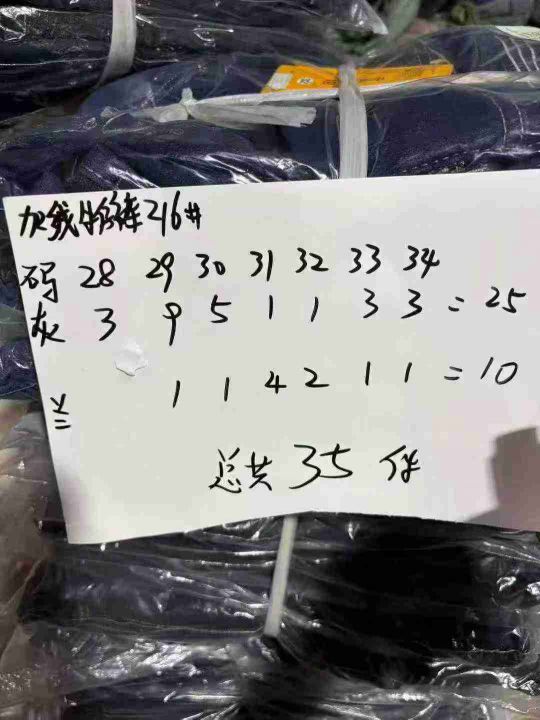 加绒牛仔裤216#
码 28 29 30 31 32 33 34
灰 3 9 5 1 1 3 3 = 25
1 1 4 2 1 1 = 10
总共 35 件